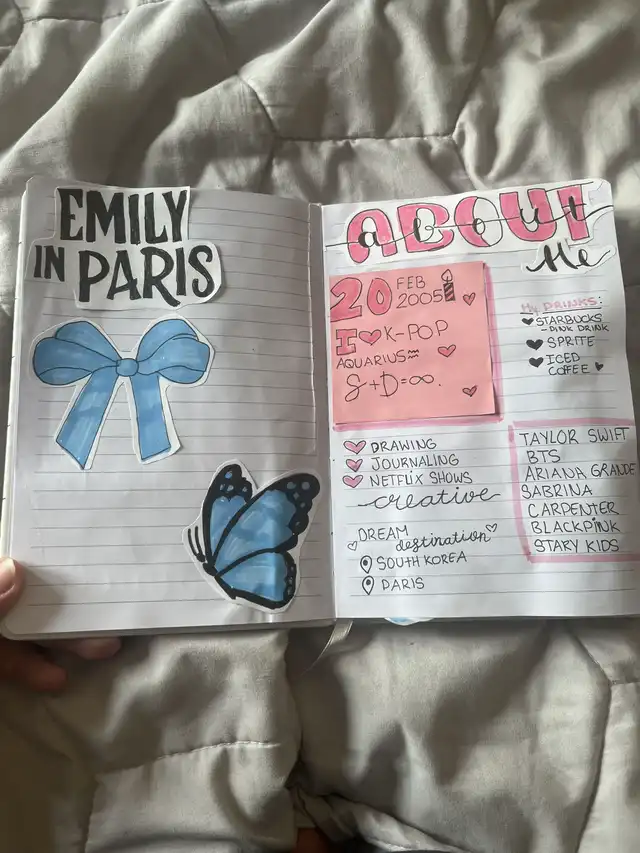 EMILY
IN PARIS
ABOUT
about
Me
20 FEB
2005
I K-POP
AQUARIUS
S+D=∞.
DRAWING
JOURNALING
NETFLIX SHOWS
creative
DREAM
destination
SOUTH KOREA
PARIS
My DRINKS:
STARBUCKS
- PINK DRINK
SPRITE
ICED
COFFEE
TAYLOR SWIFT
BTS
ARIANA GRANDE
SABRINA
CARPENTER
BLACKPINK
STARY KIDS